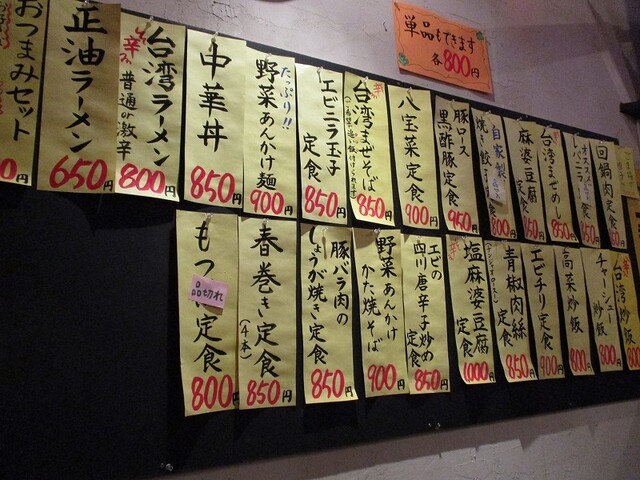 単品もできます
各800円
おつまみセット
0円
正油ラーメン
650円
台湾ラーメン
普通or激辛
800円
中華丼
850円
たっぷり!!
野菜あんかけ麺
900円
エビニラ玉子
定食
850円
台湾まぜそば
850円
八宝菜定食
900円
豚ロース
黒酢豚定食
950円
自家製
焼き餃子
800円
麻婆豆腐
定食
台湾まぜめし
850円
回鍋肉定食
もつ
品切れ
定食
800円
春巻き定食
(4本)
850円
豚バラ肉の
しょうが焼き定食
850円
野菜あんかけ
かた焼そば
900円
エビの
四川唐辛子炒め
定食
850円
塩麻婆豆腐
定食
1000円
青椒肉絲
定食
850円
エビチリ定食
900円
高菜炒飯
800円
チャーシュー
炒飯
800円
台湾炒飯